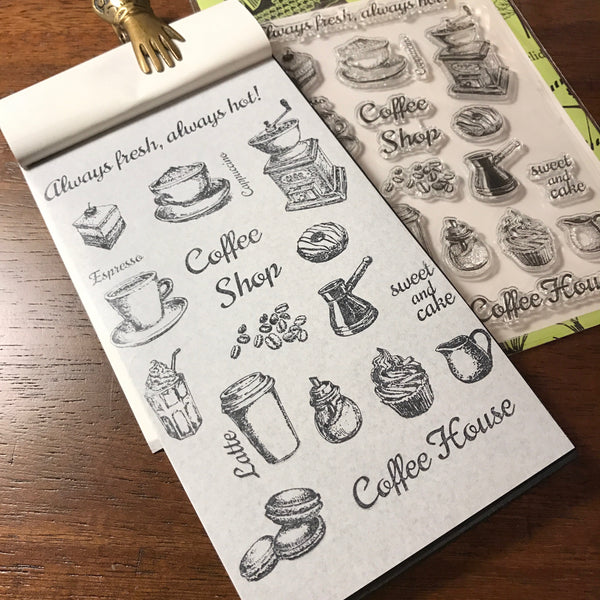 Always fresh, always hot!
Cappuccino
Coffee
Shop
Espresso
sweet
and
cake
Latte
Coffee House
Always fresh, always hot!
Coffee
Shop
sweet
and
cake
Coffee House